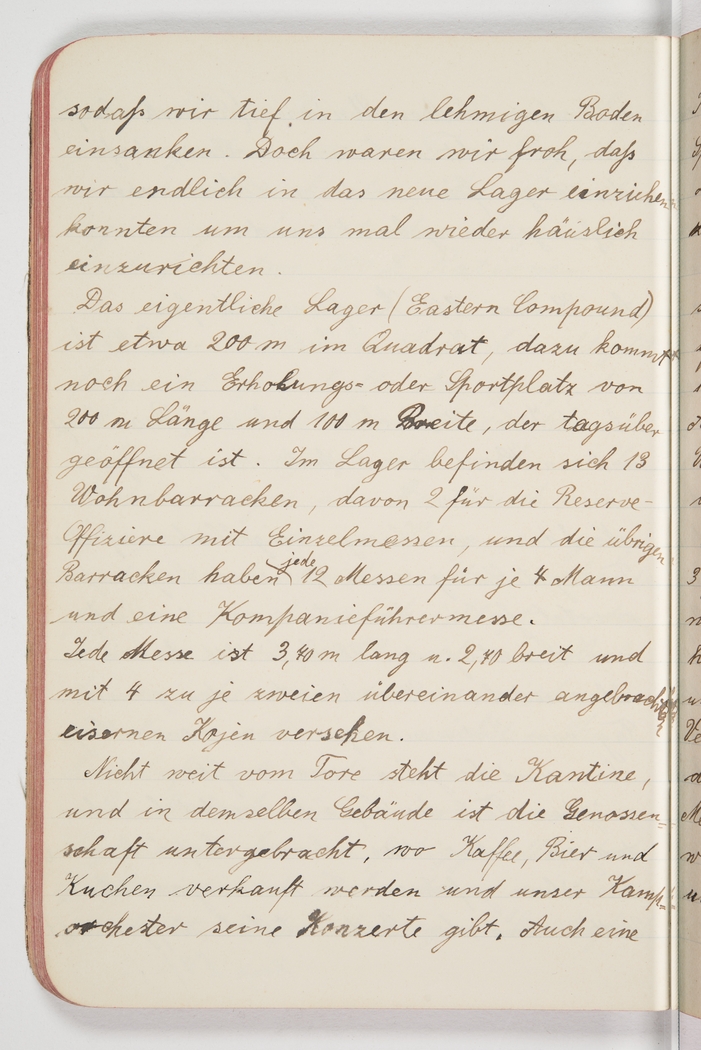 sodaß wir tief in den lehmigen Boden
einsanken. Doch waren wir froh, daß
wir endlich in das neue Lager einziehen
konnten um uns mal wieder häuslich
einzurichten.
Das eigentliche Lager (Eastern Compound)
ist etwa 200 m im Quadrat, dazu kommt
noch ein Erholungs- oder Sportplatz von
200 m Länge und 100 m Breite, der tagsüber
geöffnet ist. Im Lager befinden sich 13
Wohnbarracken, davon 2 für die Reserve-
Offiziere mit Einzelmessen, und die übrigen
Barracken haben jede 12 Messen für je 4 Mann
und eine Kompanieführermesse.
Jede Messe ist 3,40 m lang u. 2,40 breit und
mit 4 zu je zweien übereinander
eisernen Kojen versehen.
Nicht weit vom Tore steht die Kantine,
und in demselben Gebäude ist die Genossen-
schaft untergebracht, wo Kaffee, Bier und
Kuchen verkauft werden und unser Kamp-
orchester seine Konzerte gibt. Auch eine